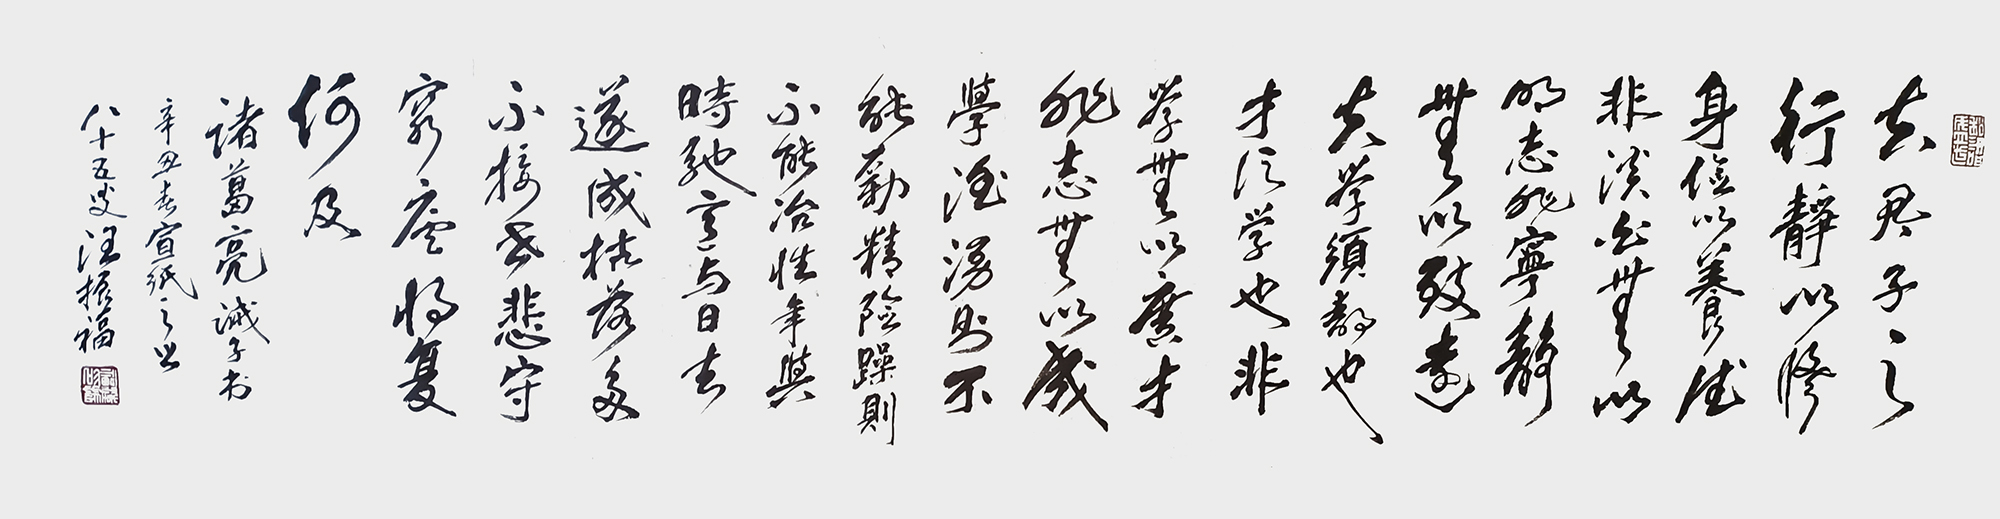 夫君子之
行靜以脩
身儉以養德
非淡泊無以
明志非寧靜
無以致遠
夫學須靜也
才須学也非
學無以廣才
非志無以成
學淫漫則不
能勵精险躁則
不能冶性年與
時馳意与日去
遂成枯落多
不接世悲守
窮廬將复
何及
諸葛亮诫子书
辛丑春宣纸之乡
八十五叟汪振福